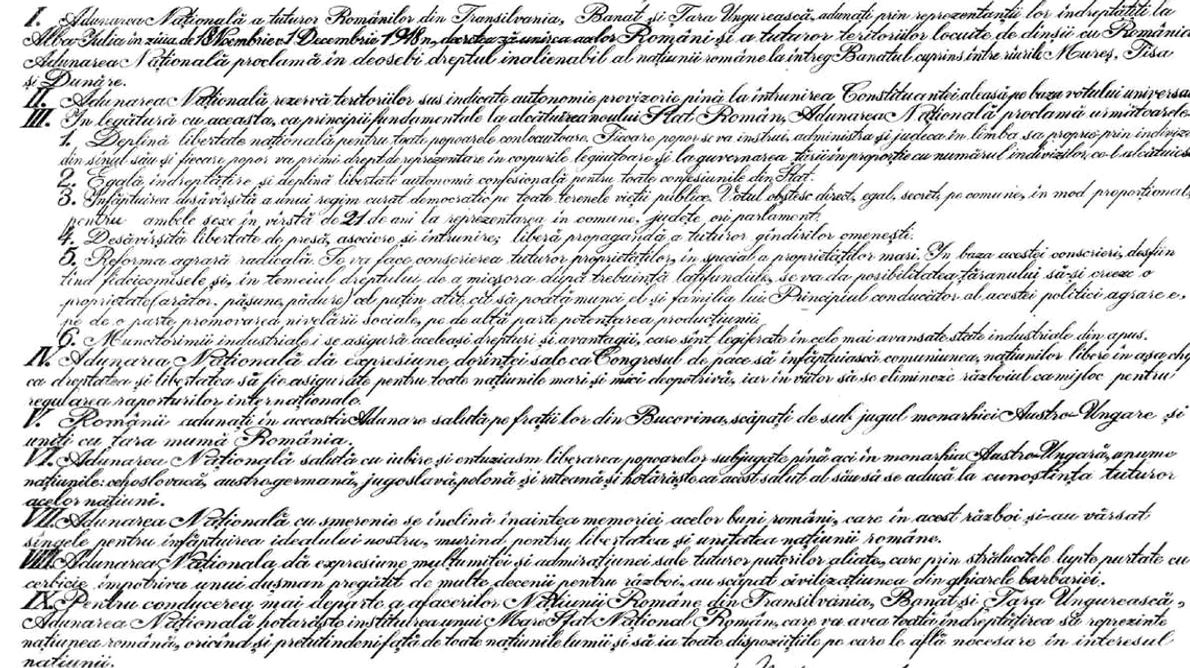 I. Adunarea Națională a tuturor Românilor din Transilvania, Banat și Țara Ungurească, adunați prin reprezentanții lor îndreptățiți la
Alba-Iulia în ziua de 18 Noembrie/1 Decembrie 1918, decretează unirea acelor Români și a tuturor teritoriilor locuite de dînșii cu România.
Adunarea Națională proclamă în deosebi dreptul inalienabil al națiunii române la întreg Banatul cuprins între rîurile Mureș, Tisa
și Dunăre.
II. Adunarea Națională rezervă teritoriilor sus indicate autonomie provizorie pînă la întrunirea Constituantei aleasă pe baza votului universal.
III. În legătură cu aceasta, ca principii fundamentale la alcătuirea noului Stat Român, Adunarea Națională proclamă următoarele:
1. Deplină libertate națională pentru toate popoarele conlocuitoare. Fiecare popor se va instrui, administra și judeca în limba sa proprie prin indivizi
din sînul său și fiecare popor va primi drept de reprezentare în corpurile legiuitoare și la guvernarea țării în proporție cu numărul indivizilor ce-l alcătuiesc
2. Egală îndreptățire și deplină libertate autonomă confesională pentru toate confesiunile din Stat.
3. Înfăptuirea desăvîrșită a unui regim curat democratic pe toate terenele vieții publice. Votul obștesc direct, egal, secret, pe comune, în mod proporțional,
pentru ambele sexe în vîrstă de 21 de ani la reprezentarea în comune, județe ori parlament.
4. Desăvîrșită libertate de presă, asociere și întrunire; liberă propagandă a tuturor gîndirilor omenești.
5. Reforma agrară radicală. Se va face conscrierea tuturor proprietăților, în special a proprietăților mari. În baza acestei conscrieri, desfiin
țind fideicomisele și, în temeiul dreptului de a micșora după trebuință latifundiile, se va da posibilitatea țăranului să-și creeze o
proprietate (arător, pășune, pădure) cel puțin atît cît să poată munci el și familia lui. Principiul conducător al acestei politici agrare e,
pe de o parte promovarea nivelării sociale, pe de altă parte potențarea producțiunii.
6. Muncitorimii industriale i se asigură aceleași drepturi și avantagii, care sînt legiferate în cele mai avansate state industriale din apus.
IV. Adunarea Națională dă expresiune dorinței sale ca Congresul de pace să înfăptuiască comuniunea națiunilor libere în așa chip
ca dreptatea și libertatea să fie asigurate pentru toate națiunile mari și mici deopotrivă, iar în viitor să se elimineze războiul ca mijloc pentru
regularea raporturilor internaționale.
V. Românii adunați în aceasta Adunare salută pe frații lor din Bucovina, scăpați de sub jugul monarhiei Austro-Ungare și
uniți cu țara mumă România.
VI. Adunarea Națională salută cu iubire și entuziasm liberarea popoarelor subjugate pînă aci în monarhia Austro-Ungară, anume
națiunile: cehoslovacă, austrogermană, jugoslavă, polonă și ruteană și hotărăște ca acest salut al său să se aducă la cunoștința tuturor
acelor națiuni.
VII. Adunarea Națională cu smerenie se înclină înaintea memoriei acelor buni români, care în acest război și-au vărsat
sîngele pentru înfăptuirea idealului nostru, murind pentru libertatea și unitatea națiunii române.
VIII. Adunarea Naționala dă expresiune mulțumitei și admirațiunei sale tuturor puterilor aliate, care prin strălucitele lupte purtate cu
cerbicie împotriva unui dușman pregătit de multe decenii pentru război, au scăpat civilizațiunea din ghiarele barbariei.
IX. Pentru conducerea mai departe a afacerilor Națiunii Române din Transilvania, Banat și Țara Ungurească,
Adunarea Națională hotărăște instituirea unui Mare Sfat Național Român, care va avea toată îndreptățirea să reprezinte
națiunea română, oricînd și pretutindeni față de toate națiunile lumii și să ia toate dispozițiile pe care le află necesare în interesul
națiunii.